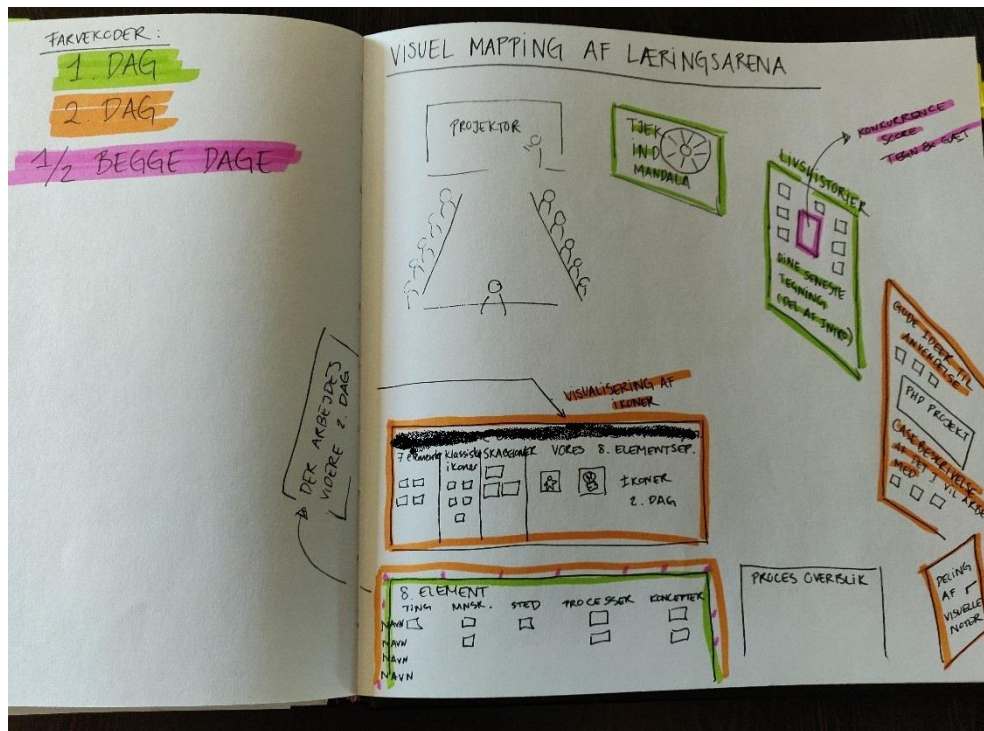 FARVEKODER:
1. DAG
2. DAG
1/2 BEGGE DAGE
VISUEL MAPPING AF LÆRINGSARENA
PROJEKTOR
TJEK
IND
MANDALA
KONKURRENCE
SCORE
TEGN & GÆT
LIVSHISTORIER
DINE SENESTE
TEGNING
(DEL AF INTRO)
GODE IDEER TIL
ANVENDELSE
PHD PROJEKT
CASEBESKRIVELSE
AF DET J VIL ARBE
MED
DER ARBEJDES
VIDERE 2. DAG
VISUALISERING AF
IKONER
7 elementer
klassiske
ikoner
SKABELONER
VORES 8. ELEMENTSEP.
IKONER
2. DAG
8. ELEMENT
TING MNSK. STED PROCESSER KONCEPTER
NAVN
NAVN
NAVN
NAVN
PROCES OVERBLIK
DELING
AF
VISUELLE
NOTER